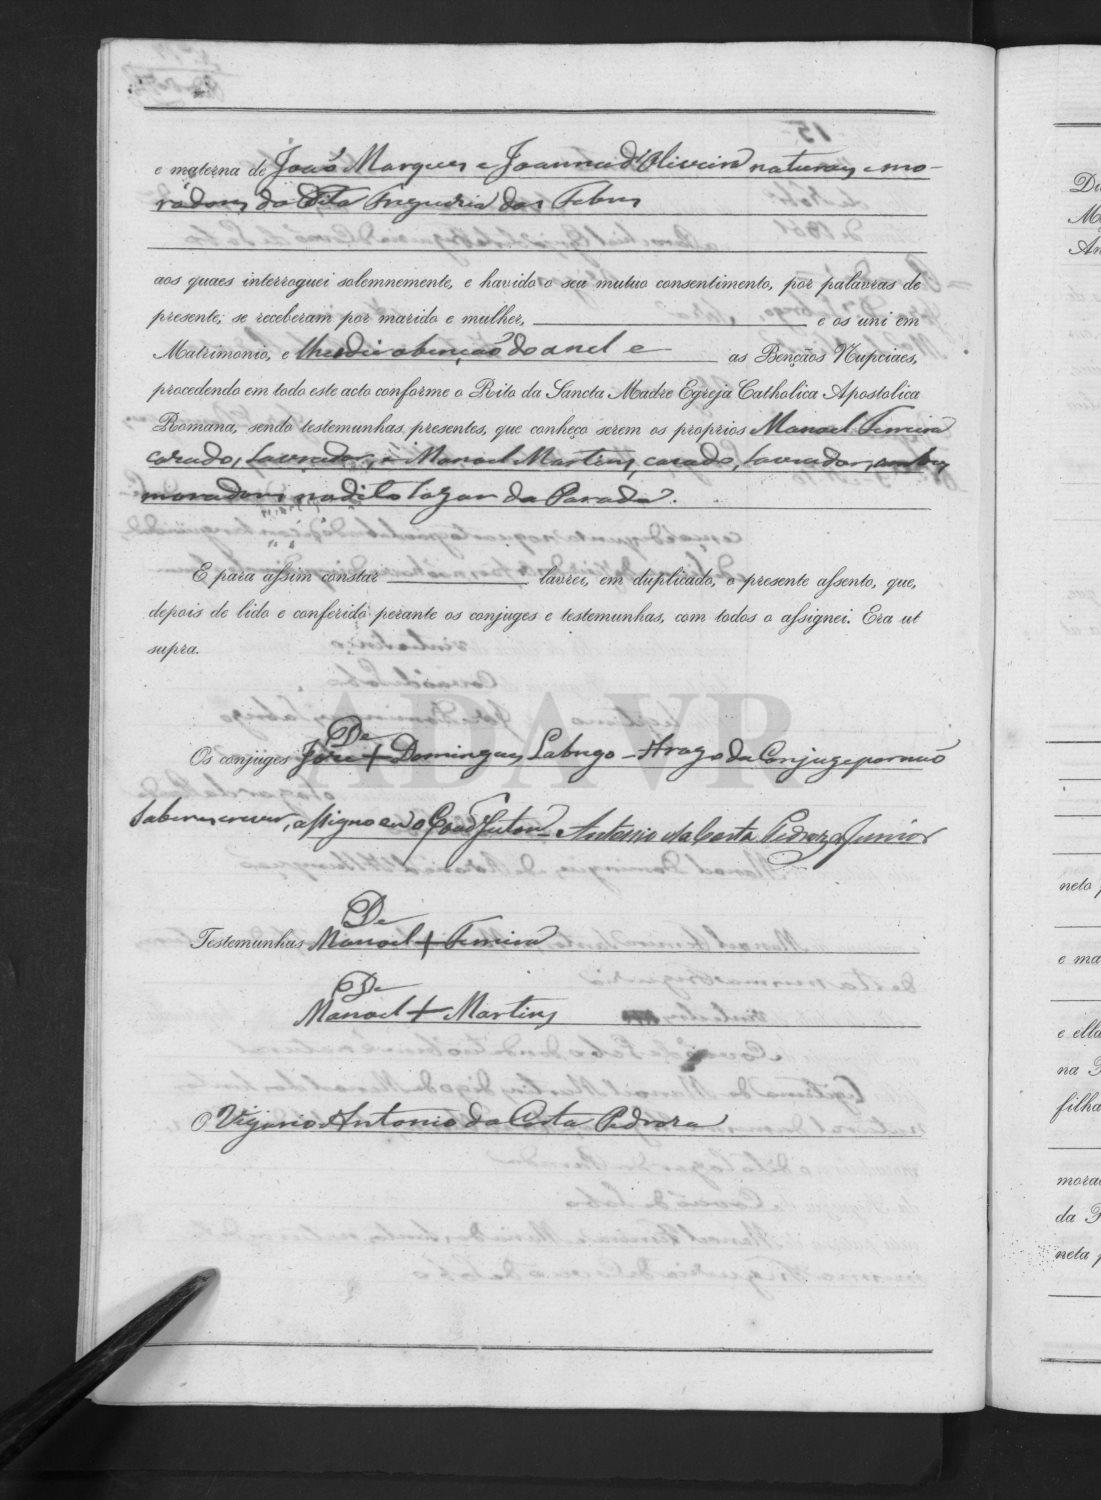 e materna de João Marques e Joanna d'Oliveira naturaes e mo-
radores da dita Freguezia das Febres
aos quaes interroguei solemnemente, e havido o seu mutuo consentimento, por palavras de
presente, se receberam por marido e mulher, e os uni em
Matrimonio, e lhes dei a benção do anel e as Bençãos Nupciaes,
procedendo em todo este acto conforme o Rito da Sancta Madre Egreja Catholica Apostolica
Romana, sendo testemunhas presentes, que conheço serem os proprios Manoel Ferreira
casado, lavrador, e Manoel Martins, casado, lavrador, ambos
moradores no dito logar da Parada.
E para assim constar lavrei, em duplicado, o presente assento, que,
depois de lido e conferido perante os conjuges e testemunhas, com todos o assignei. Era ut
supra.
ADAVR
De
Os conjuges José + Domingues Labrego - A rogo da Conjuge por não
saber escrever, assigno eu o Coadjutor - Antonio da Costa Pedroza Junior
De
Testemunhas Manoel + Ferreira
De
Manoel + Martins
O Vigario Antonio da Costa Pedroza
Di
M
An
neto p
e ma
e ella
na F
filha
mora
da F
neta p